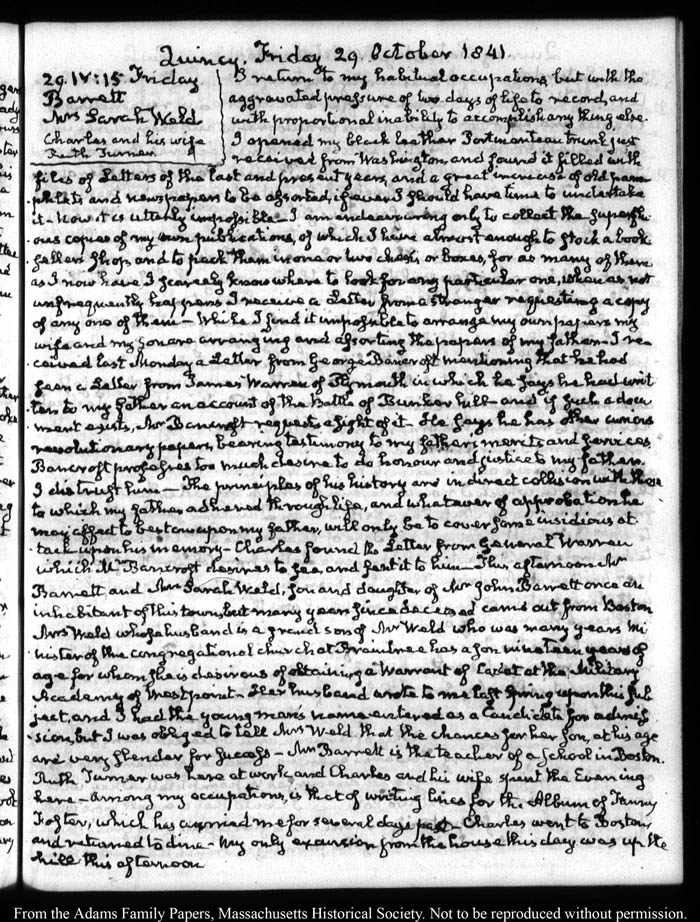 Quincy. Friday 29. October 1841.
29. IV:15 Friday
Barrett
Mrs Sarah Weld
Charles and his wife
Ruth Turner
I return to my habitual occupations, but with the
aggravated pressure of two days of life to record, and
with proportional inability to accomplish any thing else.
I opened my black leather Portmanteau trunk just
received from Washington, and found it filled with
files of Letters of the last and present years, and a great increase of old pam-
phlets and newspapers to be assorted, if ever I should have time to undertake
it- Now it is utterly impossible- I am endeavouring only to collect the superflu-
ous copies of my own publications, of which I have almost enough to stock a book
sellers shop and to pack them in one or two chests or boxes, for as many of them
as I now have I scarcely know where to look for any particular one, when as not
unfrequently happens I receive a Letter from a stranger requesting a copy
of any one of them- While I find it impossible to arrange my own papers my
wife and my son are arranging and assorting the papers of my father- I re-
ceived last Monday a Letter from George Bancroft mentioning that he had
seen a Letter from James Warren of Plymouth in which he says he had writ-
ten to my father an account of the Battle of Bunker hill- and if such a docu-
ment exists, Mr Bancroft requests a sight of it- He says he has other curious
revolutionary papers, bearing testimony to my fathers merits and services
Bancroft professes too much desire to do honour and justice to my father.
I distrust him- The principles of his history are in direct collision with those
to which my father adhered through life, and whatever of approbation he
may affect to bestow upon my father, will only be to cover some insidious at-
tack upon his memory- Charles found the Letter from General Warren
which Mr Bancroft desires to see, and sent it to him- This afternoon Mr
Barrett and Mrs Sarah Weld, son and daughter of Mr John Barrett once an
inhabitant of this town, but many years since deceased came out from Boston
Mrs Weld whose husband is a grandson of Mr Weld who was many years mi-
nister of the congregational church at Braintree has a son nineteen years of
age for whom she is desirous of obtaining a Warrant of Cadet at the Military
Academy of Westpoint- Her husband wrote to me last Spring upon this sub-
ject, and I had the young man's name entered as a Candidate for admis-
sion, but I was obliged to tell Mrs Weld that the chances for her son, at his age
are very slender for success- Mr Barrett is the teacher of a School in Boston.
Ruth Turner was here at work, and Charles and his wife spent the Evening
here- Among my occupations, is that of writing lines for the Album of Fanny
Foster, which has worried me for several days past- Charles went to Boston
and returned to dine- My only excursion from the house this day was up the
hill this afternoon
From the Adams Family Papers, Massachusetts Historical Society. Not to be reproduced without permission.